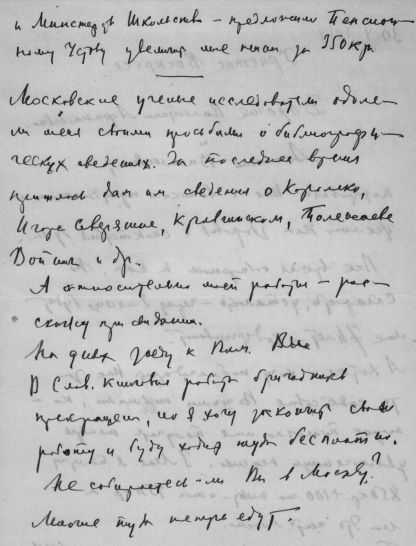 и Министерств. Школьства – предложили Пенсион-
ному Уставу увелич. мне пенс. до 950 кр.
Московские ученые исследователи одоле-
ли меня своими просьбами о библиографи-
ческих сведениях. За последнее время
пришлось дать им сведения о Короленко,
Игоре Северянине, Кравчинском,
и др.
А относительно моей работы – рас-
скажу при свидании.
На днях заеду к Вам.
В Слав. книговне работы бригадников
прекращены, но я хочу закончить свою
работу и буду ходить туда бесплатно.
Не собираетесь-ли Вы в Москву?
Многие туда теперь едут.